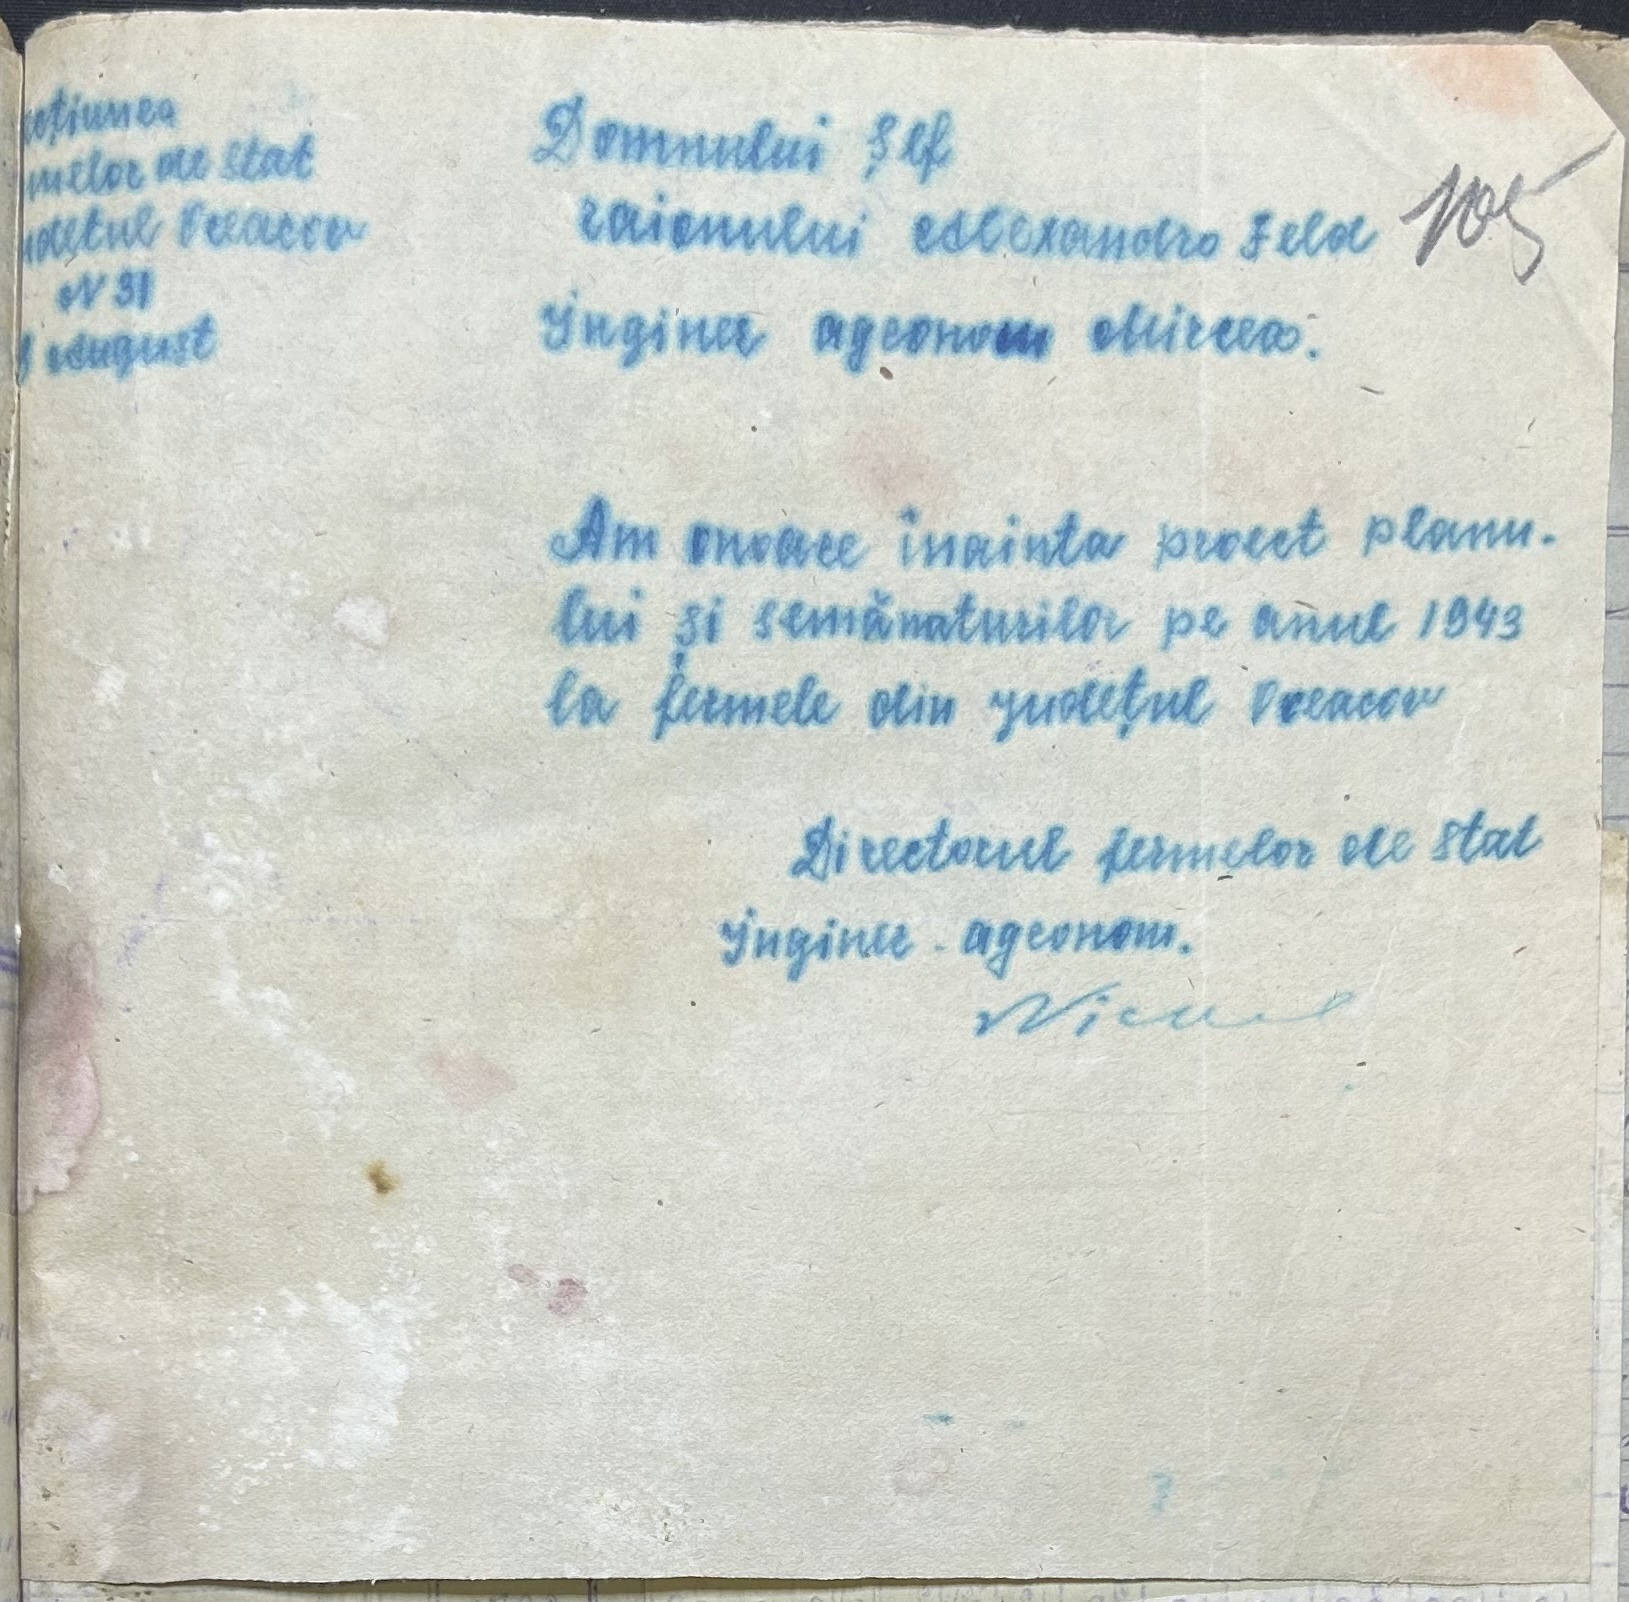 ecțiunea
melor de stat
udețul Oceacov
N 31
August
Domnului Șef
raionului Alexandro Feld
Inginer agronom Mircea.
105
Am onoare înainta proect planu-
lui și semănaturilor pe anul 1943
la fermele din județul Oceacov
Directorul fermelor de stat
Inginer - agronom.